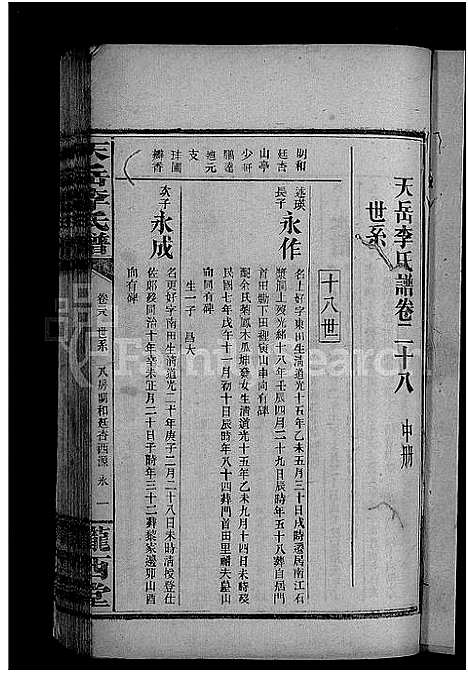 天岳李氏譜卷二十八 中册
世系
十八世
述瑛
長子
永作
名上好字東田生清道光十五年乙未五月三十日戌時遷居南江石
漿洞上歿光緒十八年壬辰四月二十九日辰時年五十八葬自居門
首田勘下田裡寅山申向有碑
配余氏棐鳳木瓜坤發女生清道光十五年乙未九月十四日未時歿
民國七年戊午十二月初十日辰時年八十四葬門首田里輔夫墓山
向有碑
生一子 昌大
次子
永成
名更好字南田生清道光二十年庚子二月二十八日未時清授登仕
佐郎歿同治十年辛未正月二十日子時年三十二葬黎家邊卯山酉
向有碑
嗣和
廷杏
山亭
少軒
鵬遠
迪元
支
珪圃
瓣香
天岳李氏譜
世系
嗣和廷杏西源 永 一
隴西堂